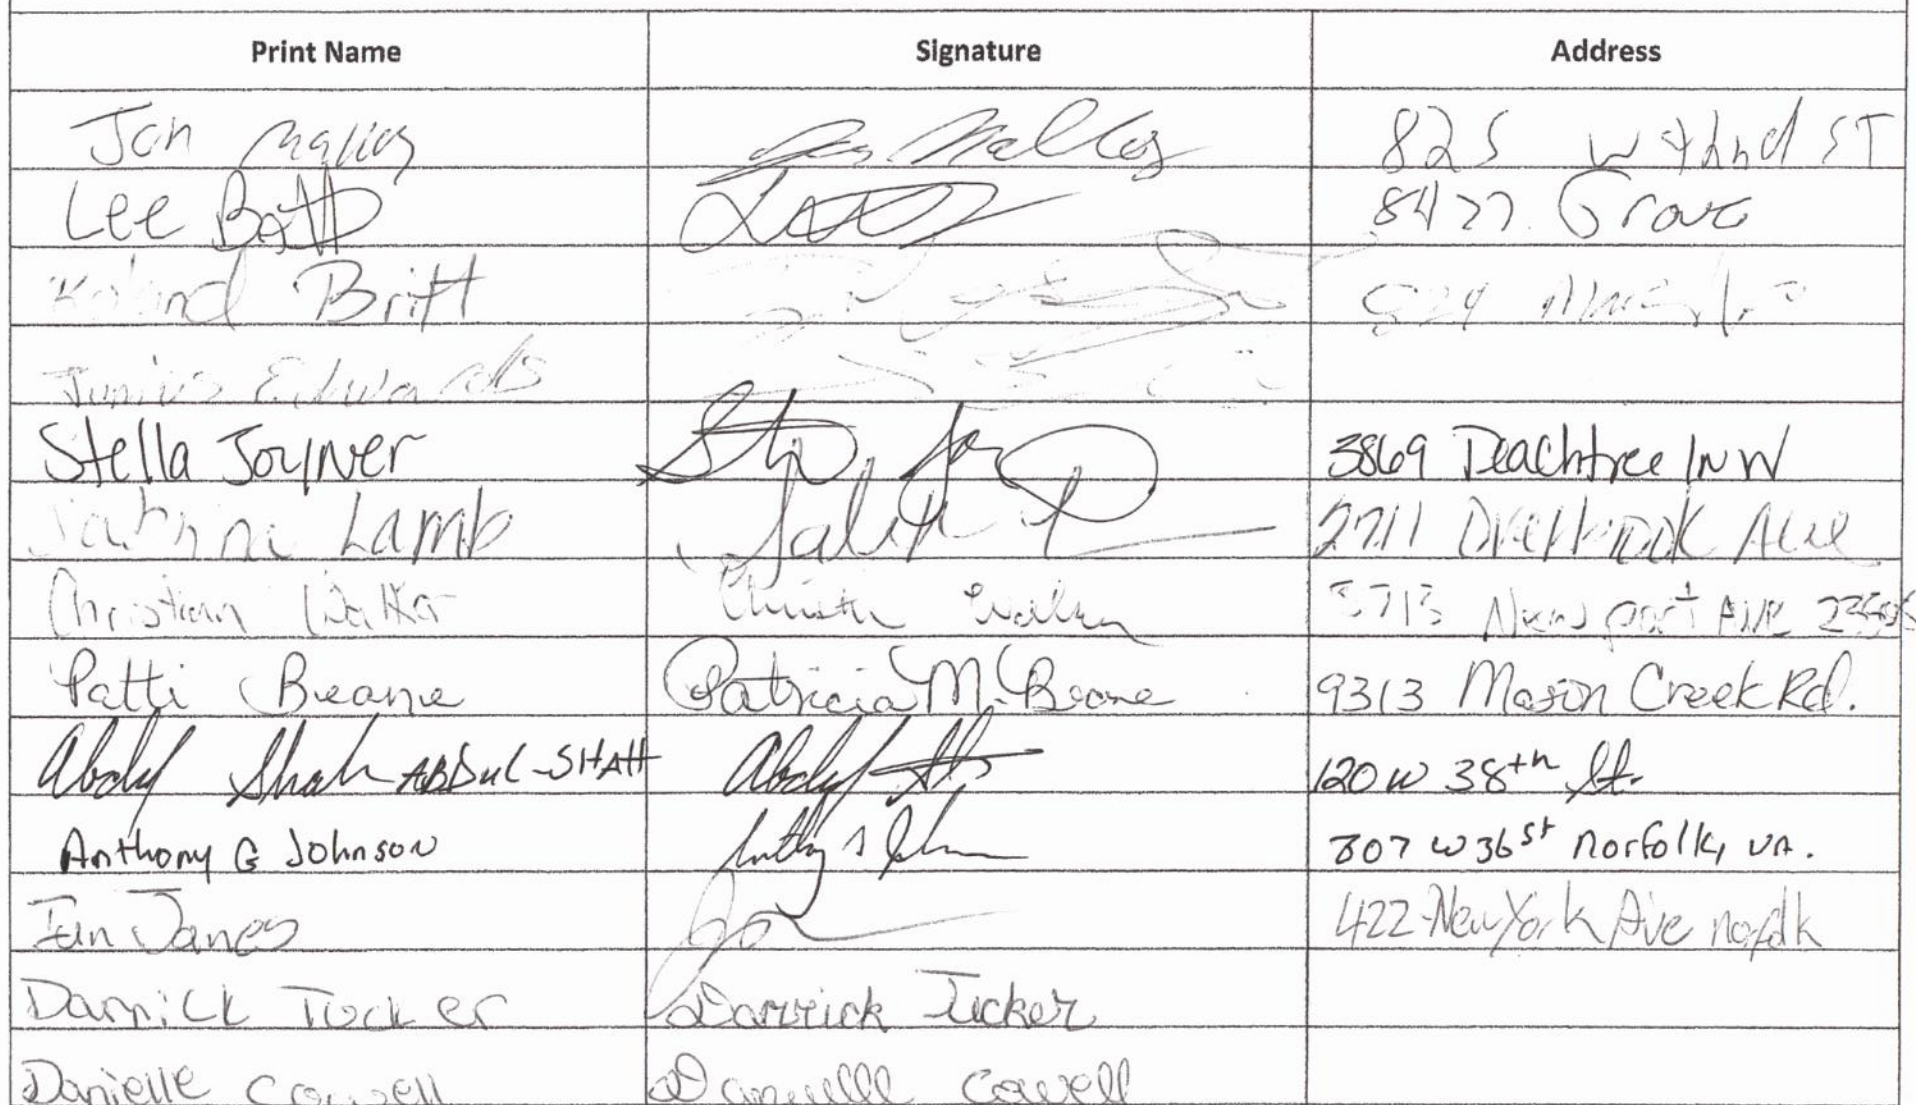 Print Name Signature Address
Jon Malloy Jon Malloy 825 W 42nd ST
Lee Batt 8427 Grove
Roland Britt
Junius Edwards
Stella Joyner 3869 Peachtree ln W
Lamb 2711 Ave
Christian Walker Christian Walker 3713 Newport AVE 23508
Patti Beane Patricia M. Beane 9313 Mason Creek Rd.
Abdul Shah ABDUL-SHAH Abdul 120 W 38th St.
Anthony G Johnson Anthony G Johnson 307 W 36st Norfolk, VA.
Ian Janes 422 New York Ave norfolk
Darrick Tucker Darrick Tucker
Danielle Cowell Danielle Cowell